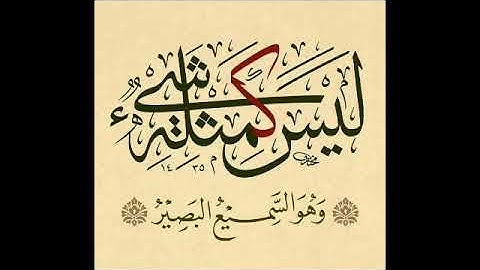 لَيْسَ كَمِثْلِهِ شَيْءٌ
١٤٣٥ م
وَهُوَ السَّمِيْعُ البَصِيْرُ